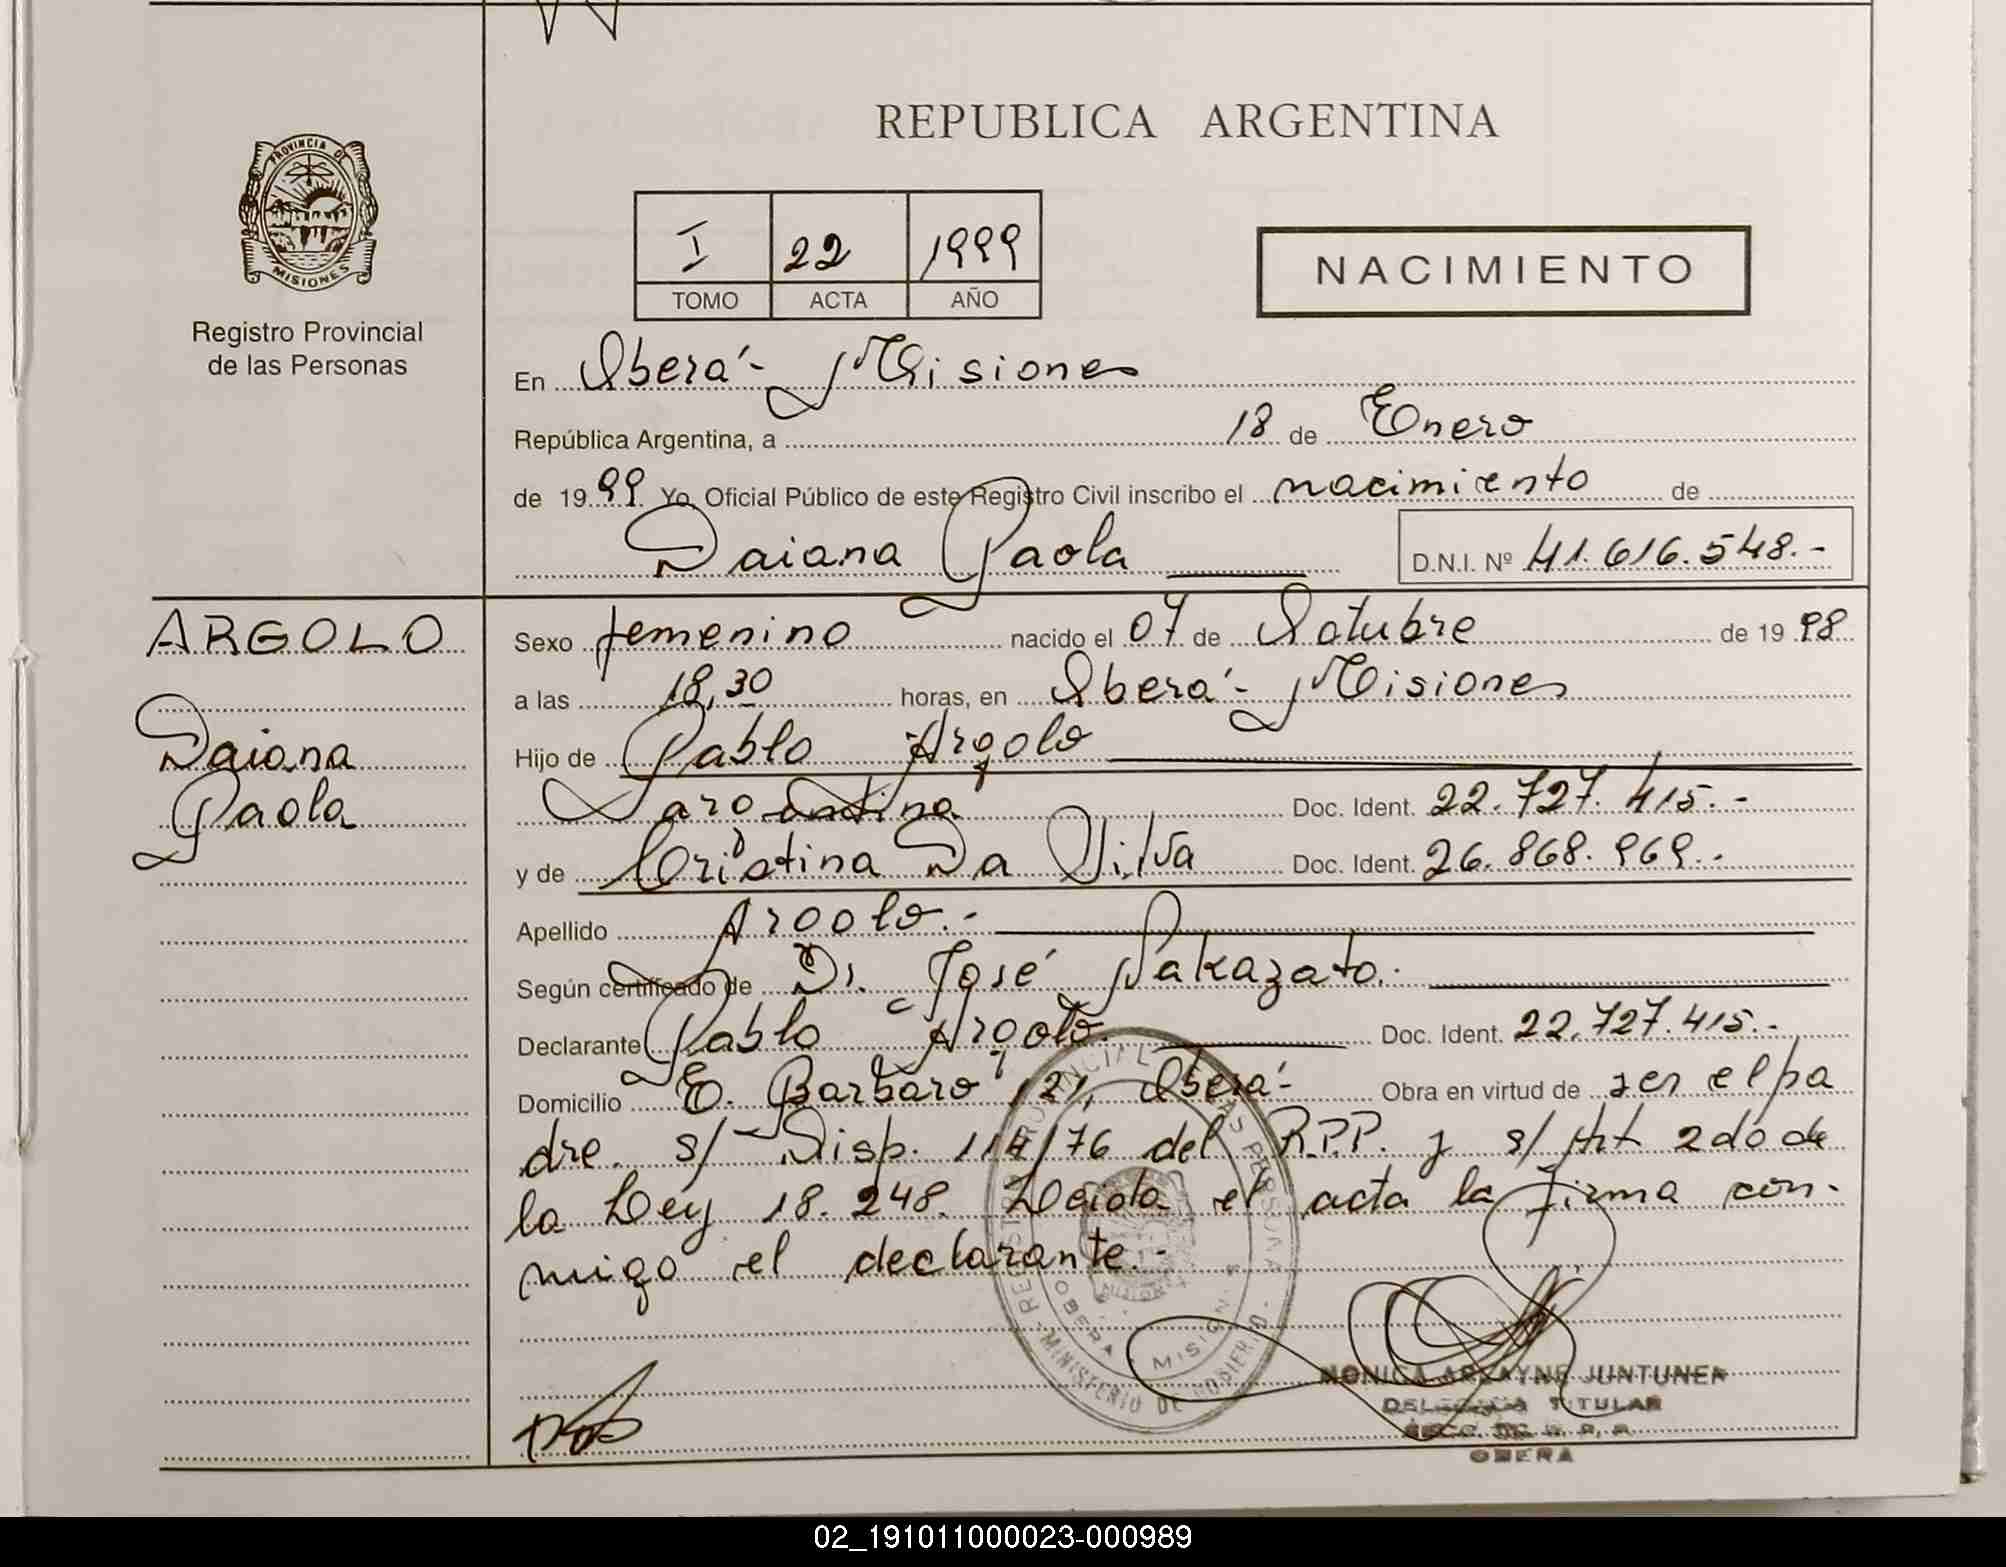 REPUBLICA ARGENTINA
PROVINCIA DE
MISIONES
Registro Provincial
de las Personas
I 22 1999
TOMO ACTA AÑO
NACIMIENTO
En Oberá - Misiones
República Argentina, a 18 de Enero
de 1999 Yo, Oficial Público de este Registro Civil inscribo el nacimiento de
Daiana Paola D.N.I. Nº 41.616.548.-
ARGOLO
Daiana
Paola
Sexo femenino nacido el 07 de Octubre de 1998
a las 18,30 horas, en Oberá - Misiones
Hijo de Pablo Argolo
Doc. Ident. 22.727.415.-
y de Cristina Da Silva Doc. Ident. 26.868.969.-
Apellido Argolo.-
Según certificado de Dr. José Sakazato.
Declarante Pablo Argolo. Doc. Ident. 22.727.415.-
Domicilio E. Barbaro 121, Oberá - Obra en virtud de ser el pa
dre. s/ Disp. 114/76 del R.P.P. y s/ Art 2do de
la Ley 18.248. Leída el acta la firma con-
migo el declarante.-
REGISTRO PROVINCIAL DE LAS PERSONAS
OBERA MISIONES
MINISTERIO DE GOBIERNO
MONICA JUNTUNEN
DELEGADA TITULAR
OBERA
02_191011000023-000989